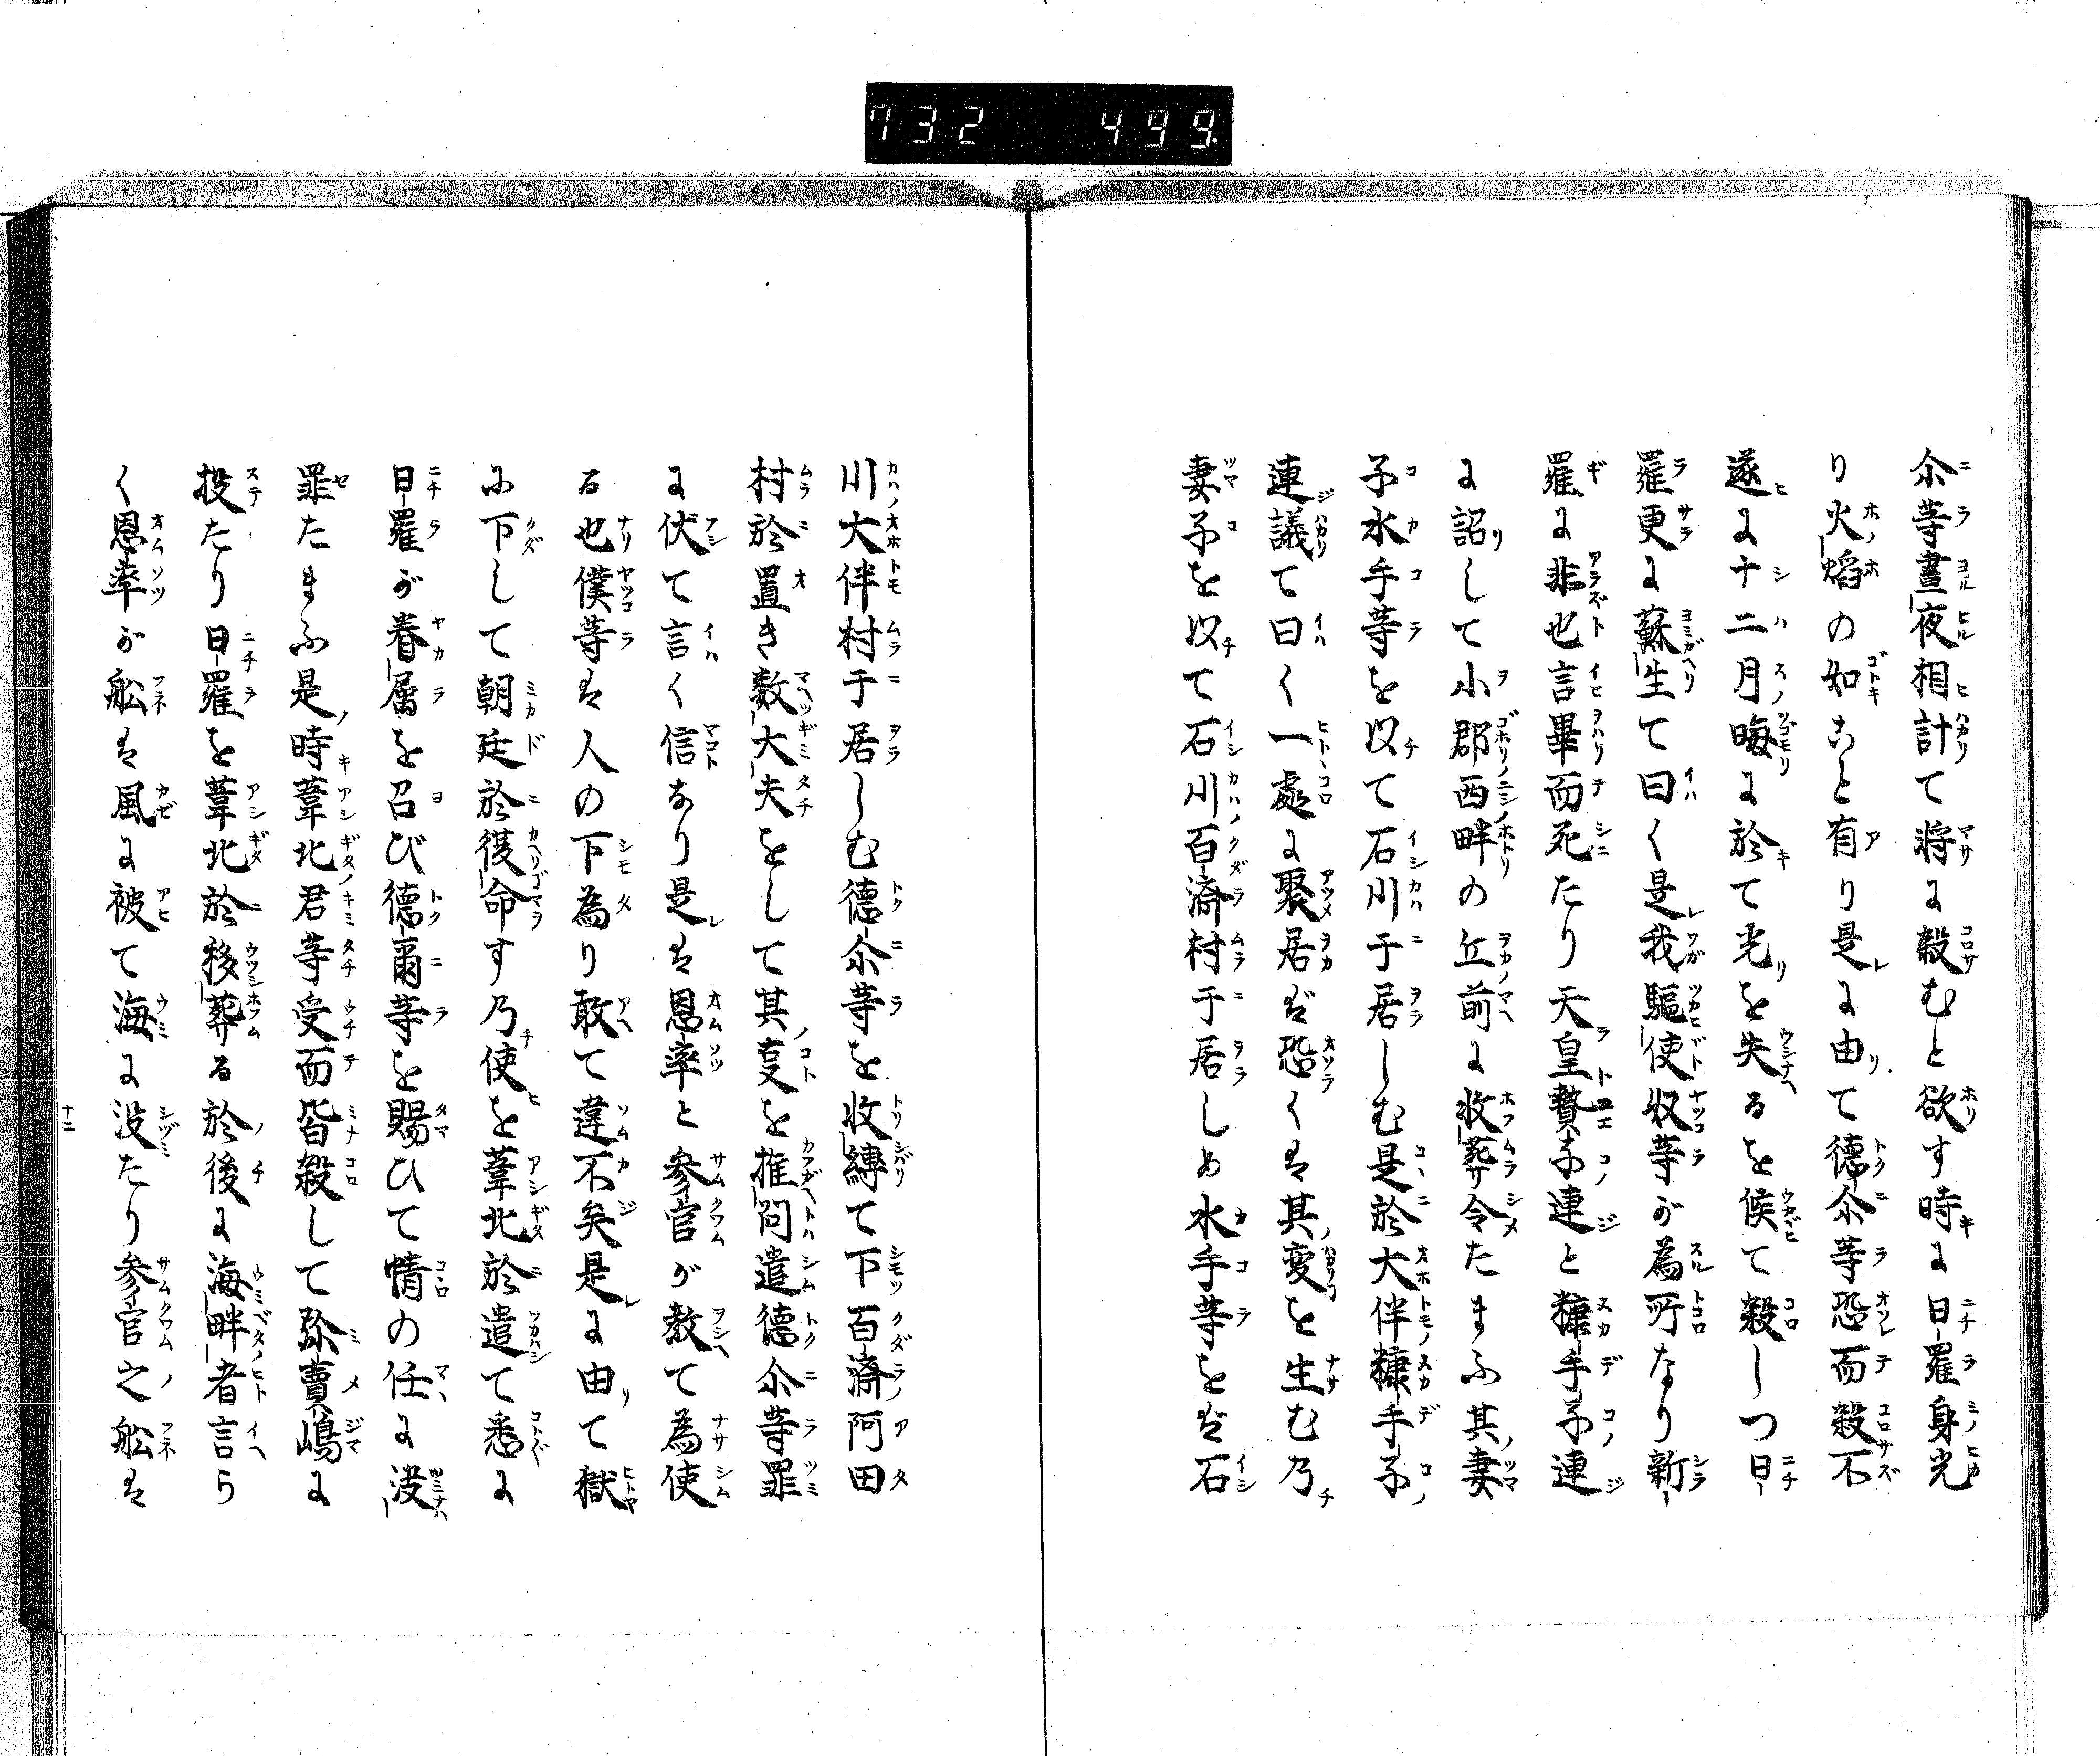 732 499
尒等晝夜相計て将に殺むと欲す時に日羅身光
り火熖の如こと有り是に由て德尒等恐而殺不
遂に十二月晦に於て光を失るを候て殺しつ日
羅更に蘇生て曰く是我驅使奴等が為所なり新
羅に非也言畢而死たり天皇贄子連と糠手子連
に詔して小郡西畔の丘前に收葬令たまふ其妻
子水手等を以て石川于居しむ是於大伴糠手子
連議て曰く一處に聚居ば恐くは其変を生む乃
妻子を以て石川百濟村于居しめ水手等をば石
川大伴村于居しむ德尒等を收縛て下百濟阿田
村於置き数大夫をして其㕝を推問遣德尒等罪
に伏て言く信なり是は恩率と參官が教て為使
る也僕等は人の下為り敢て違不矣是に由て獄
に下して朝廷於復命す乃使を葦北於遣て悉に
日羅が眷属を召び德爾等を賜ひて情の任に决
罪たまふ是時葦北君等受而皆殺して弥賣嶋に
投たり日羅を葦北於移葬る於後に海畔者言ら
く恩率が舩は風に被て海に没たり参官之舩は
十二